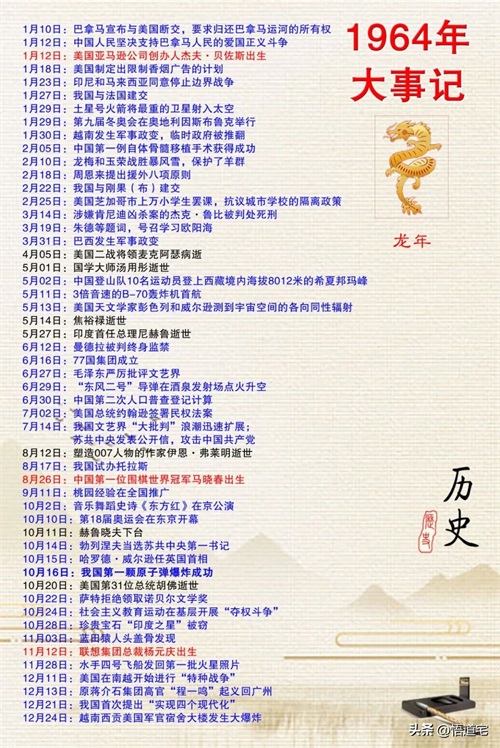 1964年
大事记
龙年
1月10日：巴拿马宣布与美国断交，要求归还巴拿马运河的所有权
1月12日：中国人民坚决支持巴拿马人民的爱国正义斗争
1月12日：美国亚马逊公司创办人杰夫·贝佐斯出生
1月18日：美国制定出限制香烟广告的计划
1月23日：印尼和马来西亚同意停止边界战争
1月27日：我国与法国建交
1月29日：土星号火箭将最重的卫星射入太空
1月29日：第九届冬奥会在奥地利因斯布鲁克举行
1月30日：越南发生军事政变，临时政府被推翻
2月05日：中国第一例自体骨髓移植手术获得成功
2月10日：龙梅和玉荣战胜暴风雪，保护了羊群
2月18日：周恩来提出援外八项原则
2月22日：我国与刚果（布）建交
2月25日：美国芝加哥市上万小学生罢课，抗议城市学校的隔离政策
3月14日：涉嫌肯尼迪凶杀案的杰克·鲁比被判处死刑
3月19日：朱德等题词，号召学习欧阳海
3月31日：巴西发生军事政变
4月05日：美国二战将领麦克阿瑟病逝
5月01日：国学大师汤用彤逝世
5月02日：中国登山队10名运动员登上西藏境内海拔8012米的希夏邦玛峰
5月11日：3倍音速的B-70轰炸机首航
5月13日：美国天文学家彭色列和威尔逊测到宇宙空间的各向同性辐射
5月14日：焦裕禄逝世
5月27日：印度首任总理尼赫鲁逝世
6月12日：曼德拉被判终身监禁
6月16日：77国集团成立
6月27日：毛泽东严厉批评文艺界
6月29日：“东风二号”导弹在酒泉发射场点火升空
6月30日：中国第二次人口普查登记计算
7月02日：美国总统约翰逊签署民权法案
7月14日：我国文艺界“大批判”浪潮迅速扩展；
苏共中央发表公开信，攻击中国共产党
8月12日：塑造007人物的作家伊恩·弗莱明逝世
8月17日：我国试办托拉斯
8月26日：中国第一位围棋世界冠军马晓春出生
9月11日：桃园经验在全国推广
10月2日：音乐舞蹈史诗《东方红》在京公演
10月10日：第18届奥运会在东京开幕
10月11日：赫鲁晓夫下台
10月14日：勃列涅夫当选苏共中央第一书记
10月15日：哈罗德·威尔逊任英国首相
10月16日：我国第一颗原子弹爆炸成功
10月20日：美国第31位总统胡佛逝世
10月22日：萨特拒绝领取诺贝尔文学奖
10月24日：社会主义教育运动在基层开展“夺权斗争”
10月28日：珍贵宝石“印度之星”被窃
11月03日：蓝田猿人头盖骨发现
11月12日：联想集团总裁杨元庆出生
11月28日：水手四号飞船发回第一批火星照片
12月11日：美国在南越开始进行“特种战争”
12月13日：原蒋介石集团高官“程一鸣”起义回广州
12月21日：我国首次提出“实现四个现代化”
12月24日：越南西贡美国军官宿舍大楼发生大爆炸
历史
历史
头条 @悟道宅